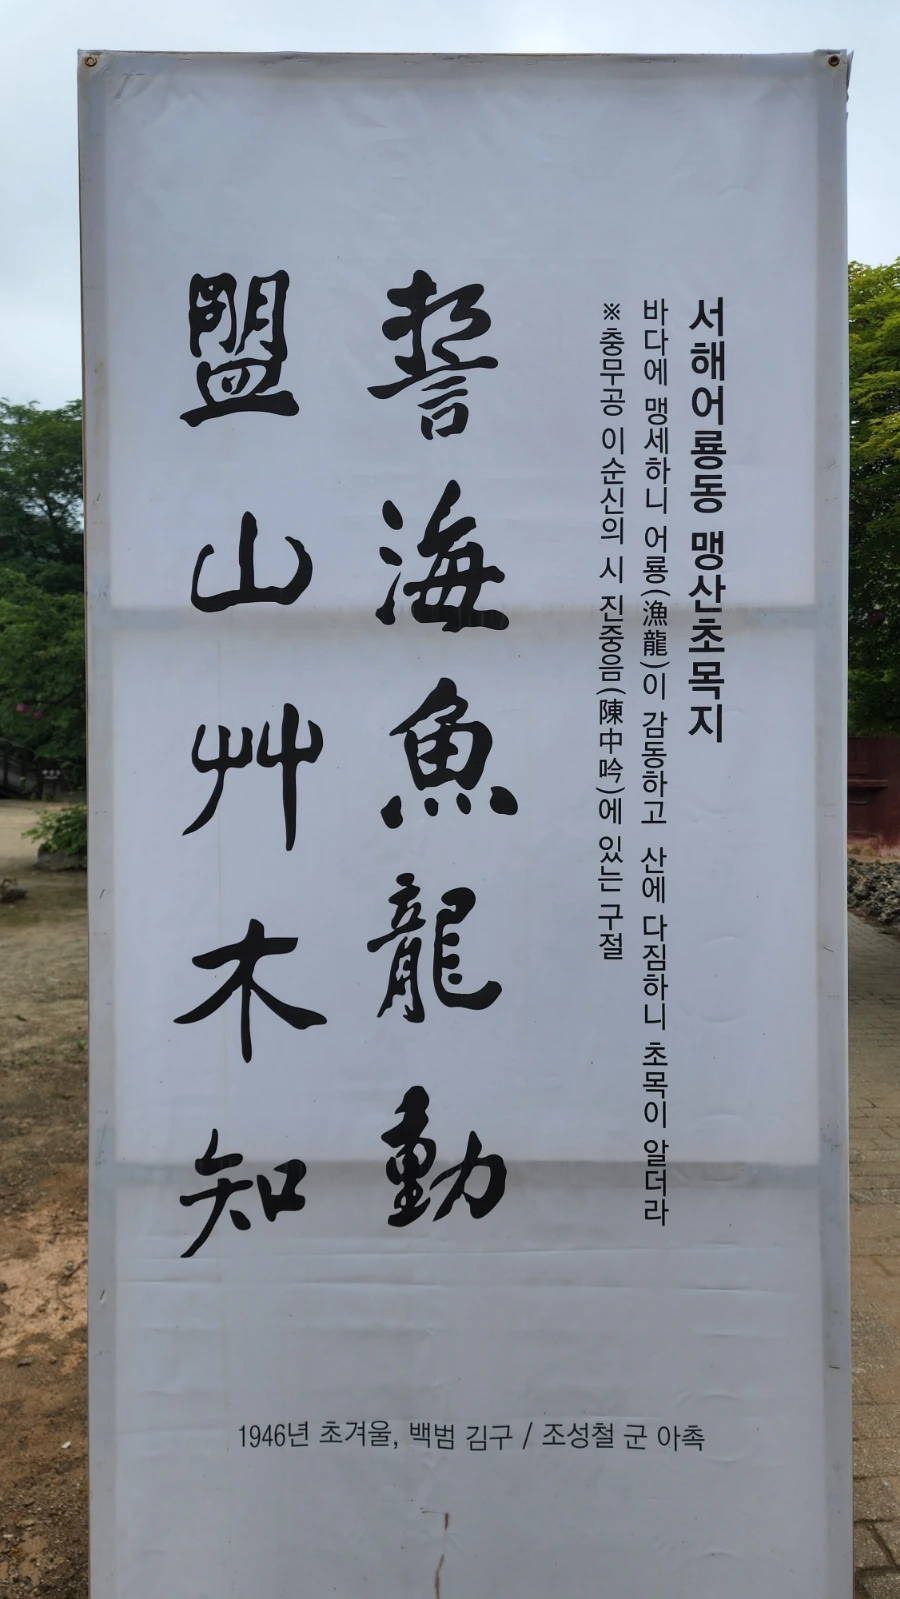 서해어룡동 맹산초목지
바다에 맹세하니 어룡(漁龍)이 감동하고 산에 다짐하니 초목이 알더라
※충무공 이순신의 시 진중음(陳中吟)에 있는 구절
誓海魚龍動
盟山艸木知
1946년 초겨울, 백범 김구 / 조성철 군 아촉